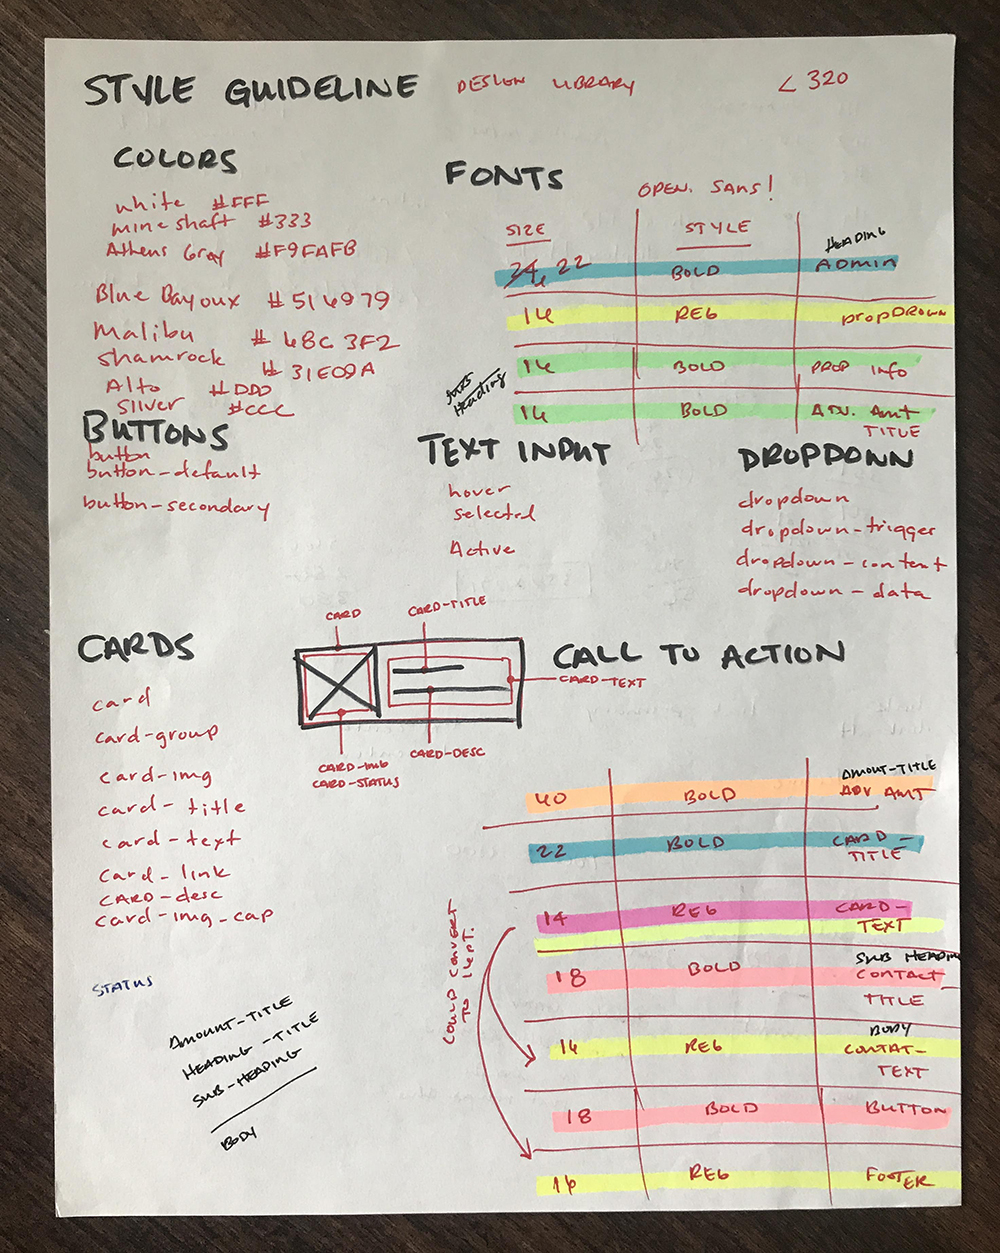 STYLE GUIDELINE DESIGN LIBRARY < 320
COLORS
white #FFF
mine shaft #333
Athens Gray #F9FAFB
Blue Bayoux #516979
Malibu #68C3F2
shamrock #31E09A
Alto #DDD
silver #CCC
FONTS
OPEN. SANS!
SIZE STYLE
HEADING
24, 22 BOLD ADMIN
16 REG DROPDROWN
16 BOLD PROP INFO
Heading
16 BOLD ADV. AMT
TITLE
BUTTONS
button
button-default
button-secondary
TEXT INPUT
hover
selected
Active
DROPDOWN
dropdown
dropdown-trigger
dropdown-content
dropdown-data
CARDS
card
card-group
card-img
card-title
card-text
card-link
CARD-desc
card-img-cap
CARD
CARD-TITLE
CARD-TEXT
CARD-DESC
CARD-IMG
CARD-STATUS
CALL TO ACTION
AMOUT-TITLE
40 BOLD ADV AMT
22 BOLD CARD-
TITLE
14 REG CARD-
TEXT
SUB HEADING
18 BOLD CONTACT
TITLE
BODY
16 REG CONTAT-
TEXT
18 BOLD BUTTON
16 REG FOOTER
COULD CONVERT
TO 16PT.
STATUS
AMOUNT-TITLE
HEADING-TITLE
SUB-HEADING
BODY